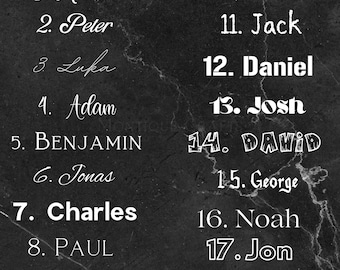 2. Peter
3. Luka
4. Adam
5. Benjamin
6. Jonas
7. Charles
8. Paul
11. Jack
12. Daniel
13. Josh
14. DAViD
15. George
16. Noah
17. Jon